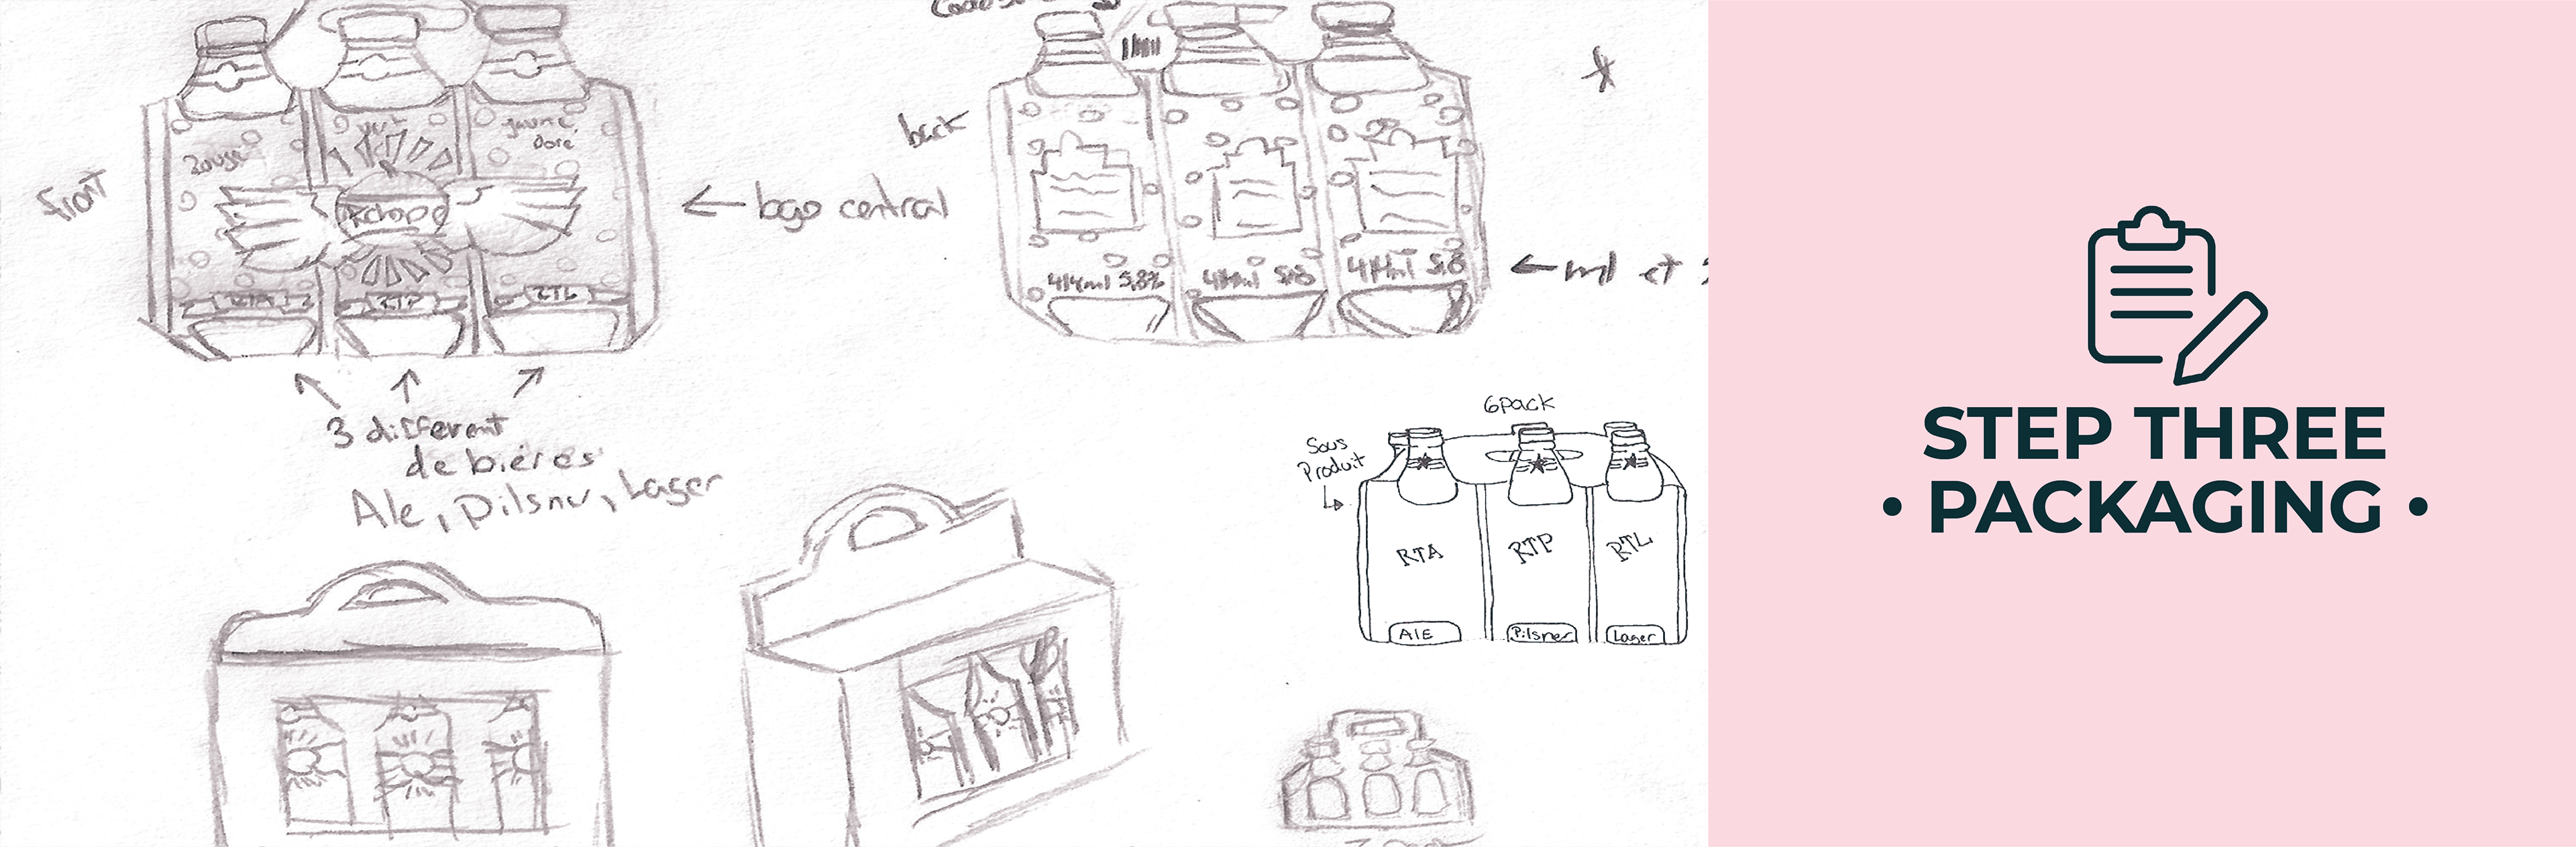 front
Rouge
vert
jaune
doré
RTA
RTP
RTL
← logo central
3 different
de bières
Ale, Pilsner, Lager
back
414ml 5.8%
414ml 5.8
414ml 5.8
← ml et
6pack
Sous
Produit
RTA
RTP
RTL
Ale
Pilsner
Lager
STEP THREE
• PACKAGING •